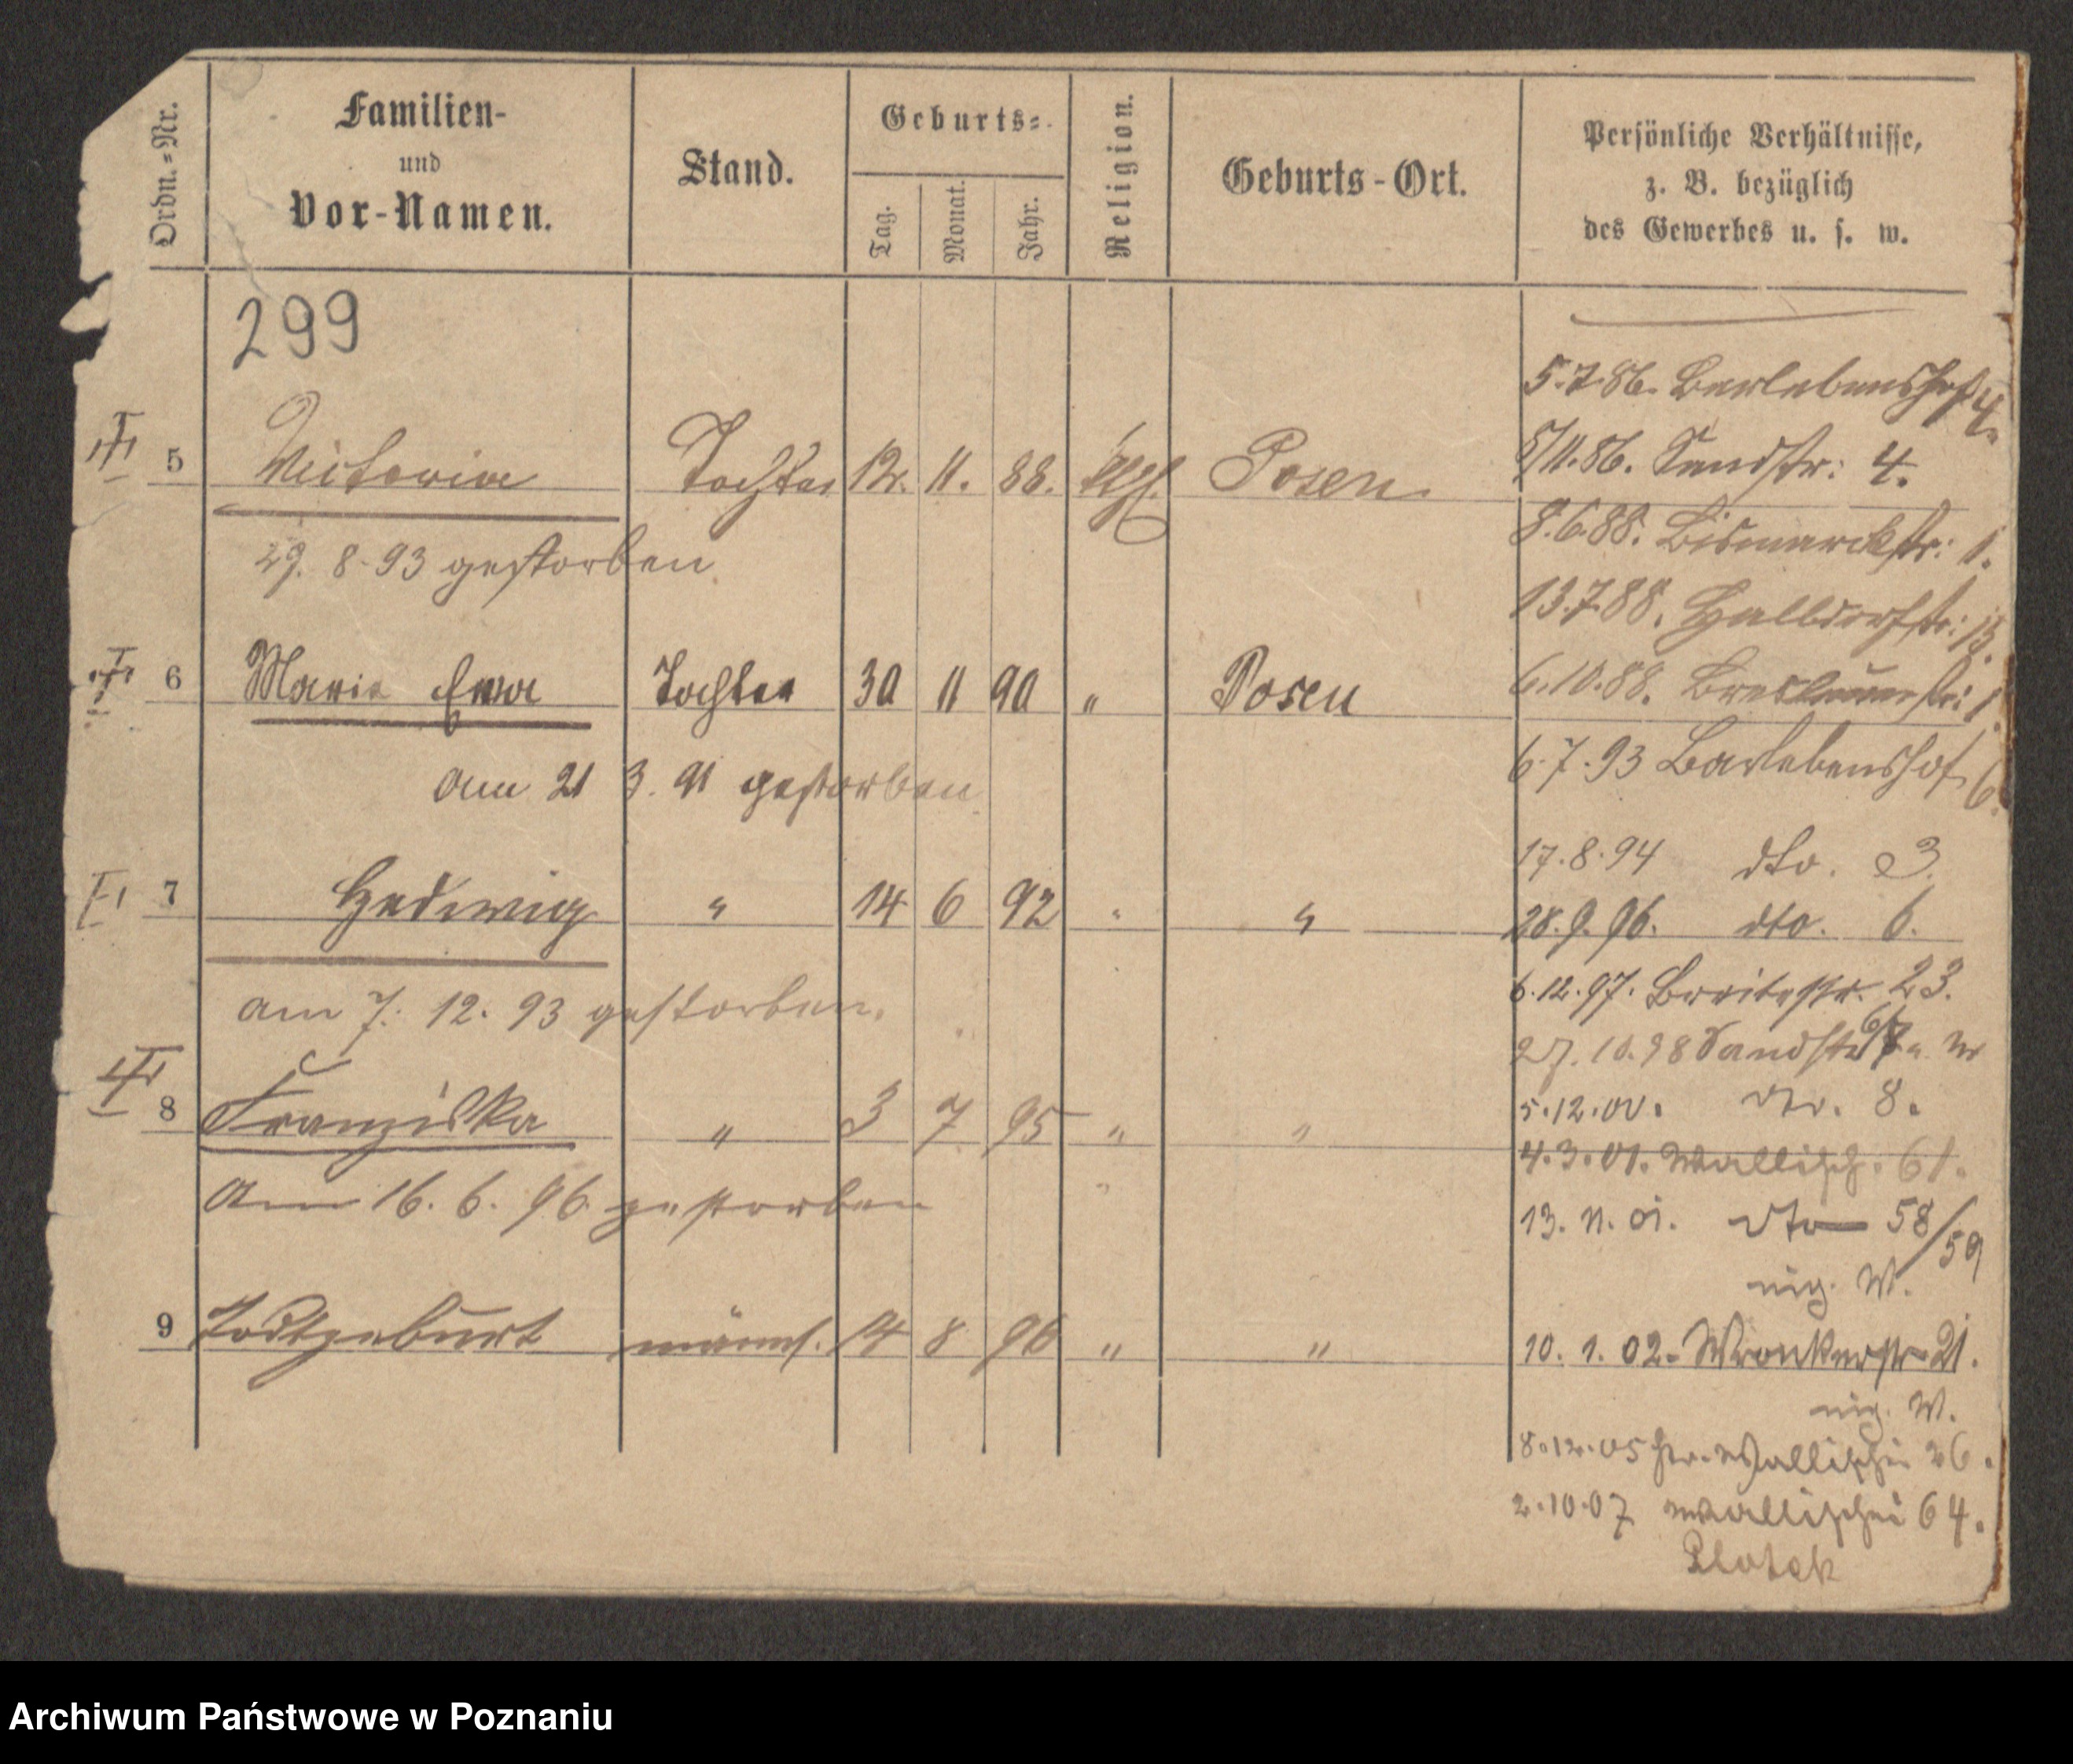 Ordn.-Nr.
Familien-
und
Vor-Namen.
Stand.
Geburts-
Tag.
Monat.
Jahr.
Religion.
Geburts-Ort.
Persönliche Verhältnisse,
z. B. bezüglich
des Gewerbes u. s. w.
299
5.7.86. Berlebenshof 4.
5 Victoria Tochter 12. 11. 88. kth. Posen
5/11.86. Sandstr: 4.
29. 8. 93 gestorben
8.6.88. Bismarckstr: 1.
13.7.88. Halbdorfstr: 13.
6 Maria Ewa Tochter 30 11 90 " Posen
6.10.88. Breslauerstr: 1.
am 21 3. 91 gestorben
6.7.93 Barlebenshof 6.
17.8.94 dto. 3.
7 Hedwig " 14 6 92 " "
28.9.96. dto. 6.
6.12.97. Breitestr. 23.
am 7. 12. 93 gestorben.
27.10.98 Sandstr 6/8
8 Franziska " 3 7 95 " "
5.12.00. dto. 8.
4.3.01. Wallisch. 61.
Am 16. 6. 96 gestorben
13. 11. 01. dto 58/59
nig. W.
9 Todtgeburt männl. 14 8 96 " "
10. 1. 02. Wronkerstr 21.
nig. W.
8.12.05 Wallischei 26.
2.10.07 Wallischei 64.
Plotek
Archiwum Państwowe w Poznaniu